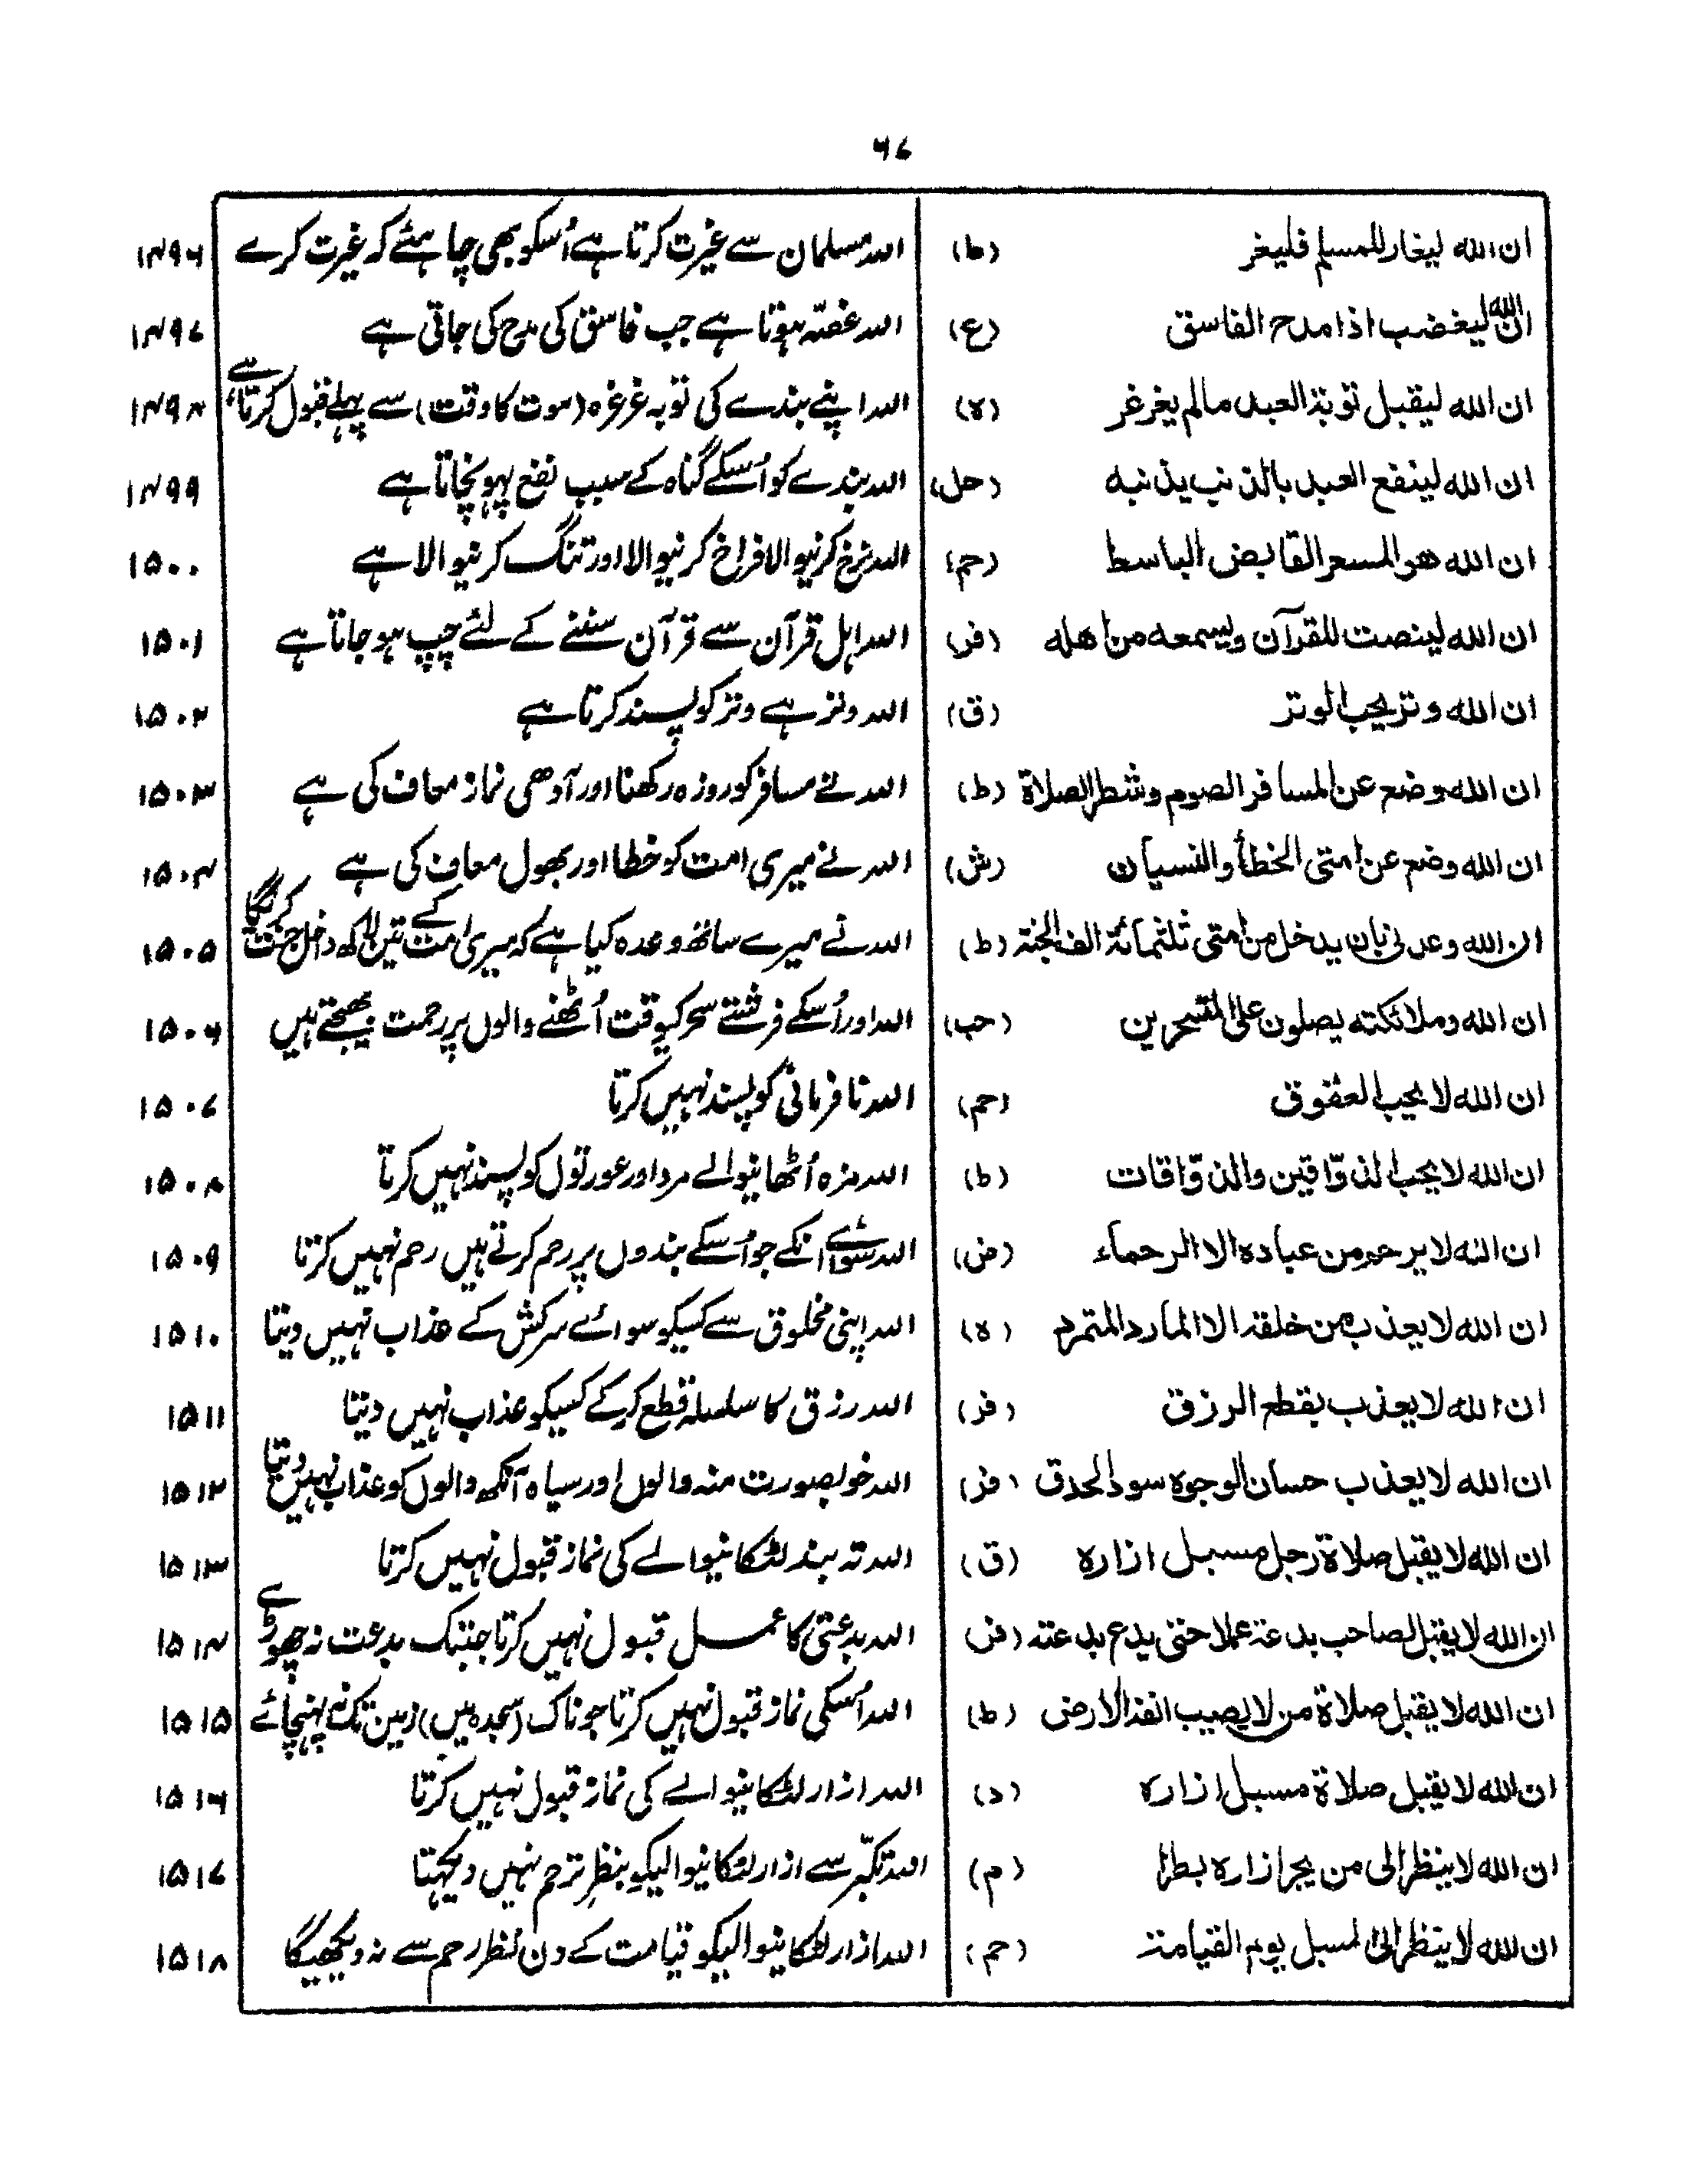 ۶۷
ان الله ليغار للمسلم فليغر (ط) اللہ مسلمان سے غیرت کرتا ہے اُسکو بھی چاہئے کہ غیرت کرے ۱۴۹۶
ان الله ليغضب اذا مدح الفاسق (ع) اللہ غصّہ ہوتا ہے جب فاسق کی مدح کی جاتی ہے ۱۴۹۷
ان الله ليقبل توبة العبد مالم يغرغر (ه) اللہ اپنے بندے کی توبہ غرغرہ (موت کا وقت) سے پہلے قبول کرتا ہے ۱۴۹۸
ان الله لينفع العبد بالذنب يذنبه (حل) اللہ بندے کو اُسکے گناہ کے سبب نفع پہونچاتا ہے ۱۴۹۹
ان الله هو المسعر القابض الباسط (حم) اللہ نرخ کرنیوالا فراخ کرنیوالا اور تنگ کرنیوالا ہے ۱۵۰۰
ان الله لينصت للقرآن ويسمعه من اهله (فر) اللہ اہل قرآن سے قرآن سننے کے لئے چپ ہو جاتا ہے ۱۵۰۱
ان الله وتر يحب الوتر (ق) اللہ وتر ہے وتر کو پسند کرتا ہے ۱۵۰۲
ان الله وضع عن المسافر الصوم وشطر الصلاة (ط) اللہ نے مسافر کو روزہ رکھنا اور آدھی نماز معاف کی ہے ۱۵۰۳
ان الله وضع عن امتى الخطأ والنسيان (ش) اللہ نے میری امت کو خطا اور بھول معاف کی ہے ۱۵۰۴
ان الله وعدنى بان يدخل من امتى ثلثمائة الف الجنة (ط) اللہ نے میرے ساتھ وعدہ کیا ہے کہ میری امت کے تین لاکھ داخل جنت کریگا ۱۵۰۵
ان الله وملائكته يصلون على المتسحرين (حب) اللہ اور اُسکے فرشتے سحر کیوقت اُٹھنے والوں پر رحمت بھیجتے ہیں ۱۵۰۶
ان الله لا يحب العقوق (حم) اللہ نافرمانی کو پسند نہیں کرتا ۱۵۰۷
ان الله لا يحب الذوّاقين والذوّاقات (ط) اللہ مزہ اُٹھانیوالے مرد اور عورتوں کو پسند نہیں کرتا ۱۵۰۸
ان الله لا يرحم من عباده الا الرحماء (ض) اللہ سوائے انکے جو اُسکے بندوں پر رحم کرتے ہیں رحم نہیں کرتا ۱۵۰۹
ان الله لا يعذب من خلقه الا المارد المتمرد (ه) اللہ اپنی مخلوق سے کسیکو سوائے سرکش کے عذاب نہیں دیتا ۱۵۱۰
ان الله لا يعذب بقطع الرزق (فر) اللہ رزق کا سلسلہ قطع کرکے کسیکو عذاب نہیں دیتا ۱۵۱۱
ان الله لا يعذب حسان الوجوه سود الحدق (فر) اللہ خوبصورت منہ والوں اور سیاہ آنکھ والوں کو عذاب نہیں دیتا ۱۵۱۲
ان الله لا يقبل صلاة رجل مسبل ازاره (ق) اللہ تہ بند لٹکانیوالے کی نماز قبول نہیں کرتا ۱۵۱۳
ان الله لا يقبل لصاحب بدعة عملا حتى يدع بدعته (فر) اللہ بدعتی کا عمل قبول نہیں کرتا جبتک بدعت نہ چھوڑے ۱۵۱۴
ان الله لا يقبل صلاة من لا يصيب انفه الارض (ط) اللہ اُسکی نماز قبول نہیں کرتا جو ناک (سجدہ میں) زمین تک نہ پہنچائے ۱۵۱۵
ان الله لا يقبل صلاة مسبل ازاره (د) اللہ ازار لٹکانیوالے کی نماز قبول نہیں کرتا ۱۵۱۶
ان الله لا ينظر الى من يجر ازاره بطرا (م) اللہ تکبّر سے ازار لٹکانیوالیکو بنظر ترحم نہیں دیکھتا ۱۵۱۷
ان الله لا ينظر الى المسبل يوم القيامة (حم) اللہ ازار لٹکانیوالیکو قیامت کے دن نظر رحم سے نہ دیکھیگا ۱۵۱۸